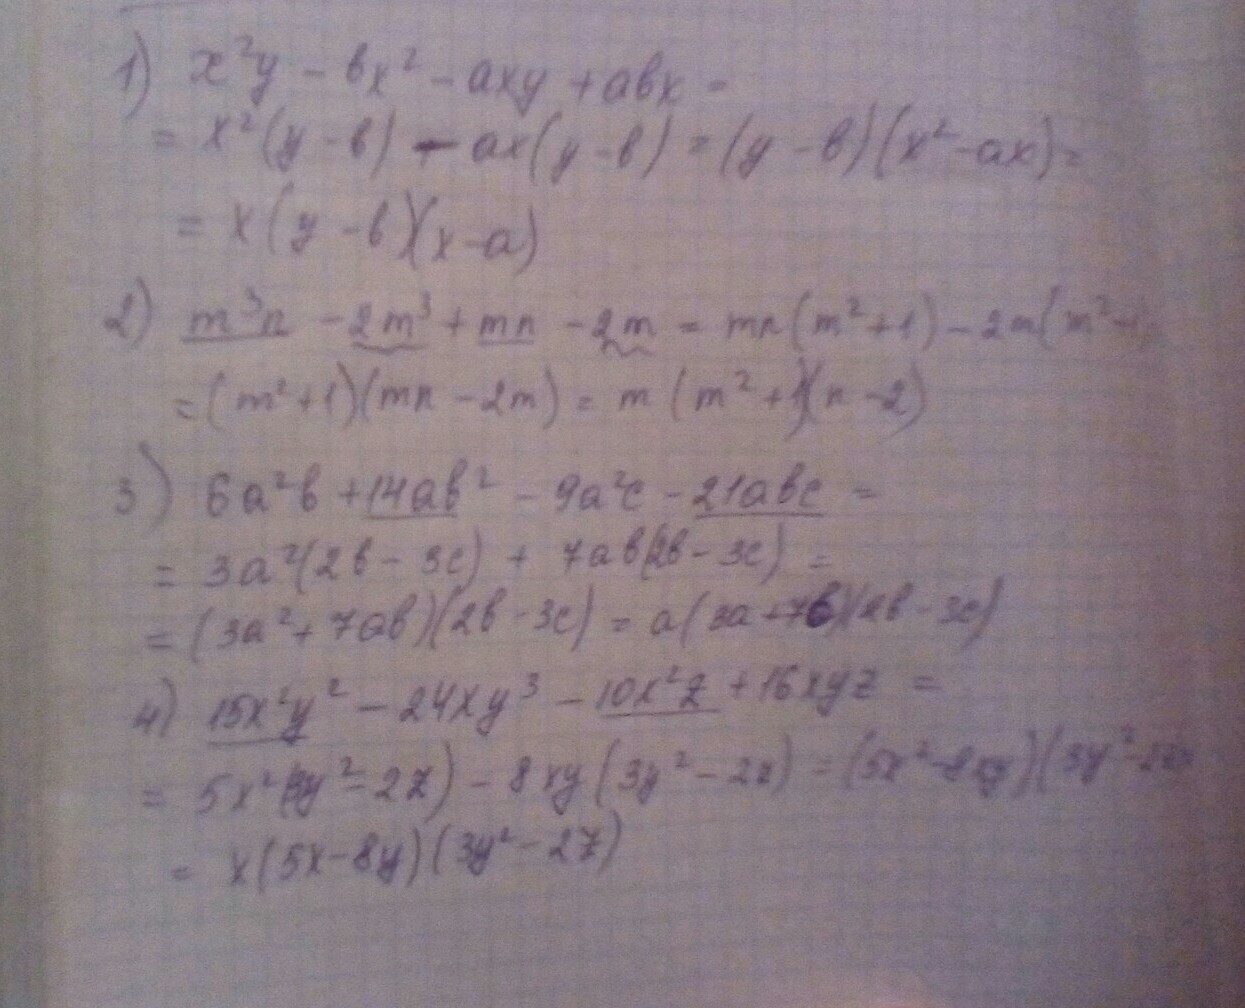 1) x²y - вx² - axy + aвx =
= x²(y - в) - ax(y - в) = (y - в)(x² - ax) =
= x(y - в)(x - a)
2) m³n - 2m³ + mn - 2m = mn(m² + 1) - 2m(m² + 1) =
= (m² + 1)(mn - 2m) = m(m² + 1)(n - 2)
3) 6a²в + 14aв² - 9a²c - 21aвc =
= 3a²(2в - 3c) + 7aв(2в - 3c) =
= (3a² + 7aв)(2в - 3c) = a(3a + 7в)(2в - 3c)
4) 15x²y² - 24xy³ - 10x²z + 16xyz =
= 5x²(3y² - 2z) - 8xy(3y² - 2z) = (5x² - 8xy)(3y² - 2z)
= x(5x - 8y)(3y² - 2z)